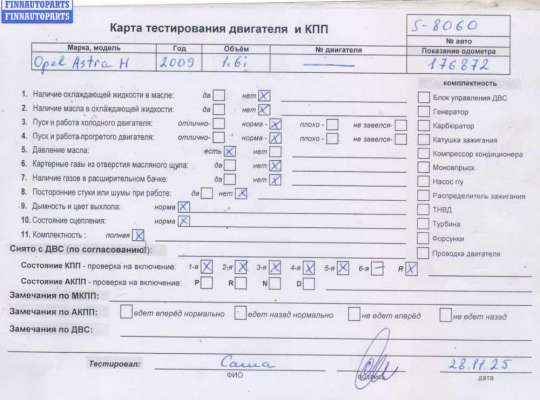 FINNAUTOPARTS
FINNAUTOPARTS
Карта тестирования двигателя и КПП
S-8060
№ авто
Марка, модель Год Объём № двигателя Показание одометра
Opel Astra H 2009 1.6i — 176.872
комплектность
1. Наличие охлаждающей жидкости в масле: да нет X
2. Наличие масла в охлаждающей жидкости: да нет X
3. Пуск и работа холодного двигателя: отлично- норма - X плохо - не завелся-
4. Пуск и работа прогретого двигателя: отлично- норма - X плохо - не завелся-
5. Давление масла: есть X нет
6. Картерные газы из отверстия масляного щупа: да нет X
7. Наличие газов в расширительном бачке: да нет X
8. Посторонние стуки или шумы при работе: да нет X
9. Дымность и цвет выхлопа: норма X
10. Состояние сцепления: норма X
11. Комплектность : полная X
Блок управления ДВС
Генератор
Карбюратор
Катушка зажигания
Компрессор кондиционера
Моновпрыск
Насос гпу
Распределитель зажигания
ТНВД
Турбина
Форсунки
Проводка двигателя
Снято с ДВС (по согласованию!):
Состояние КПП - проверка на включение: 1-я X 2-я X 3-я X 4-я X 5-я X 6-я — R X
Состояние АКПП - проверка на включение: P R N D
Замечания по МКПП:
Замечания по АКПП: едет вперёд нормально едет назад нормально не едет вперёд не едет назад
Замечания по ДВС:
Тестировал: Саша 28.11.25
ФИО подпись дата